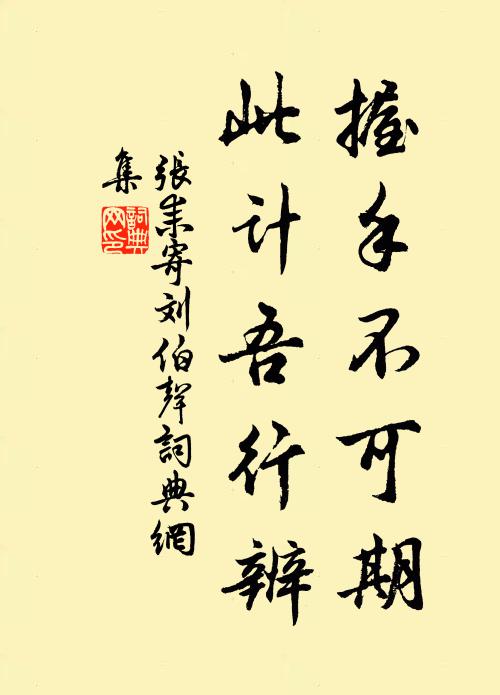 握手不可期
此计吾行辨
張耒寄刘伯聲詞典網
集
詞典网印